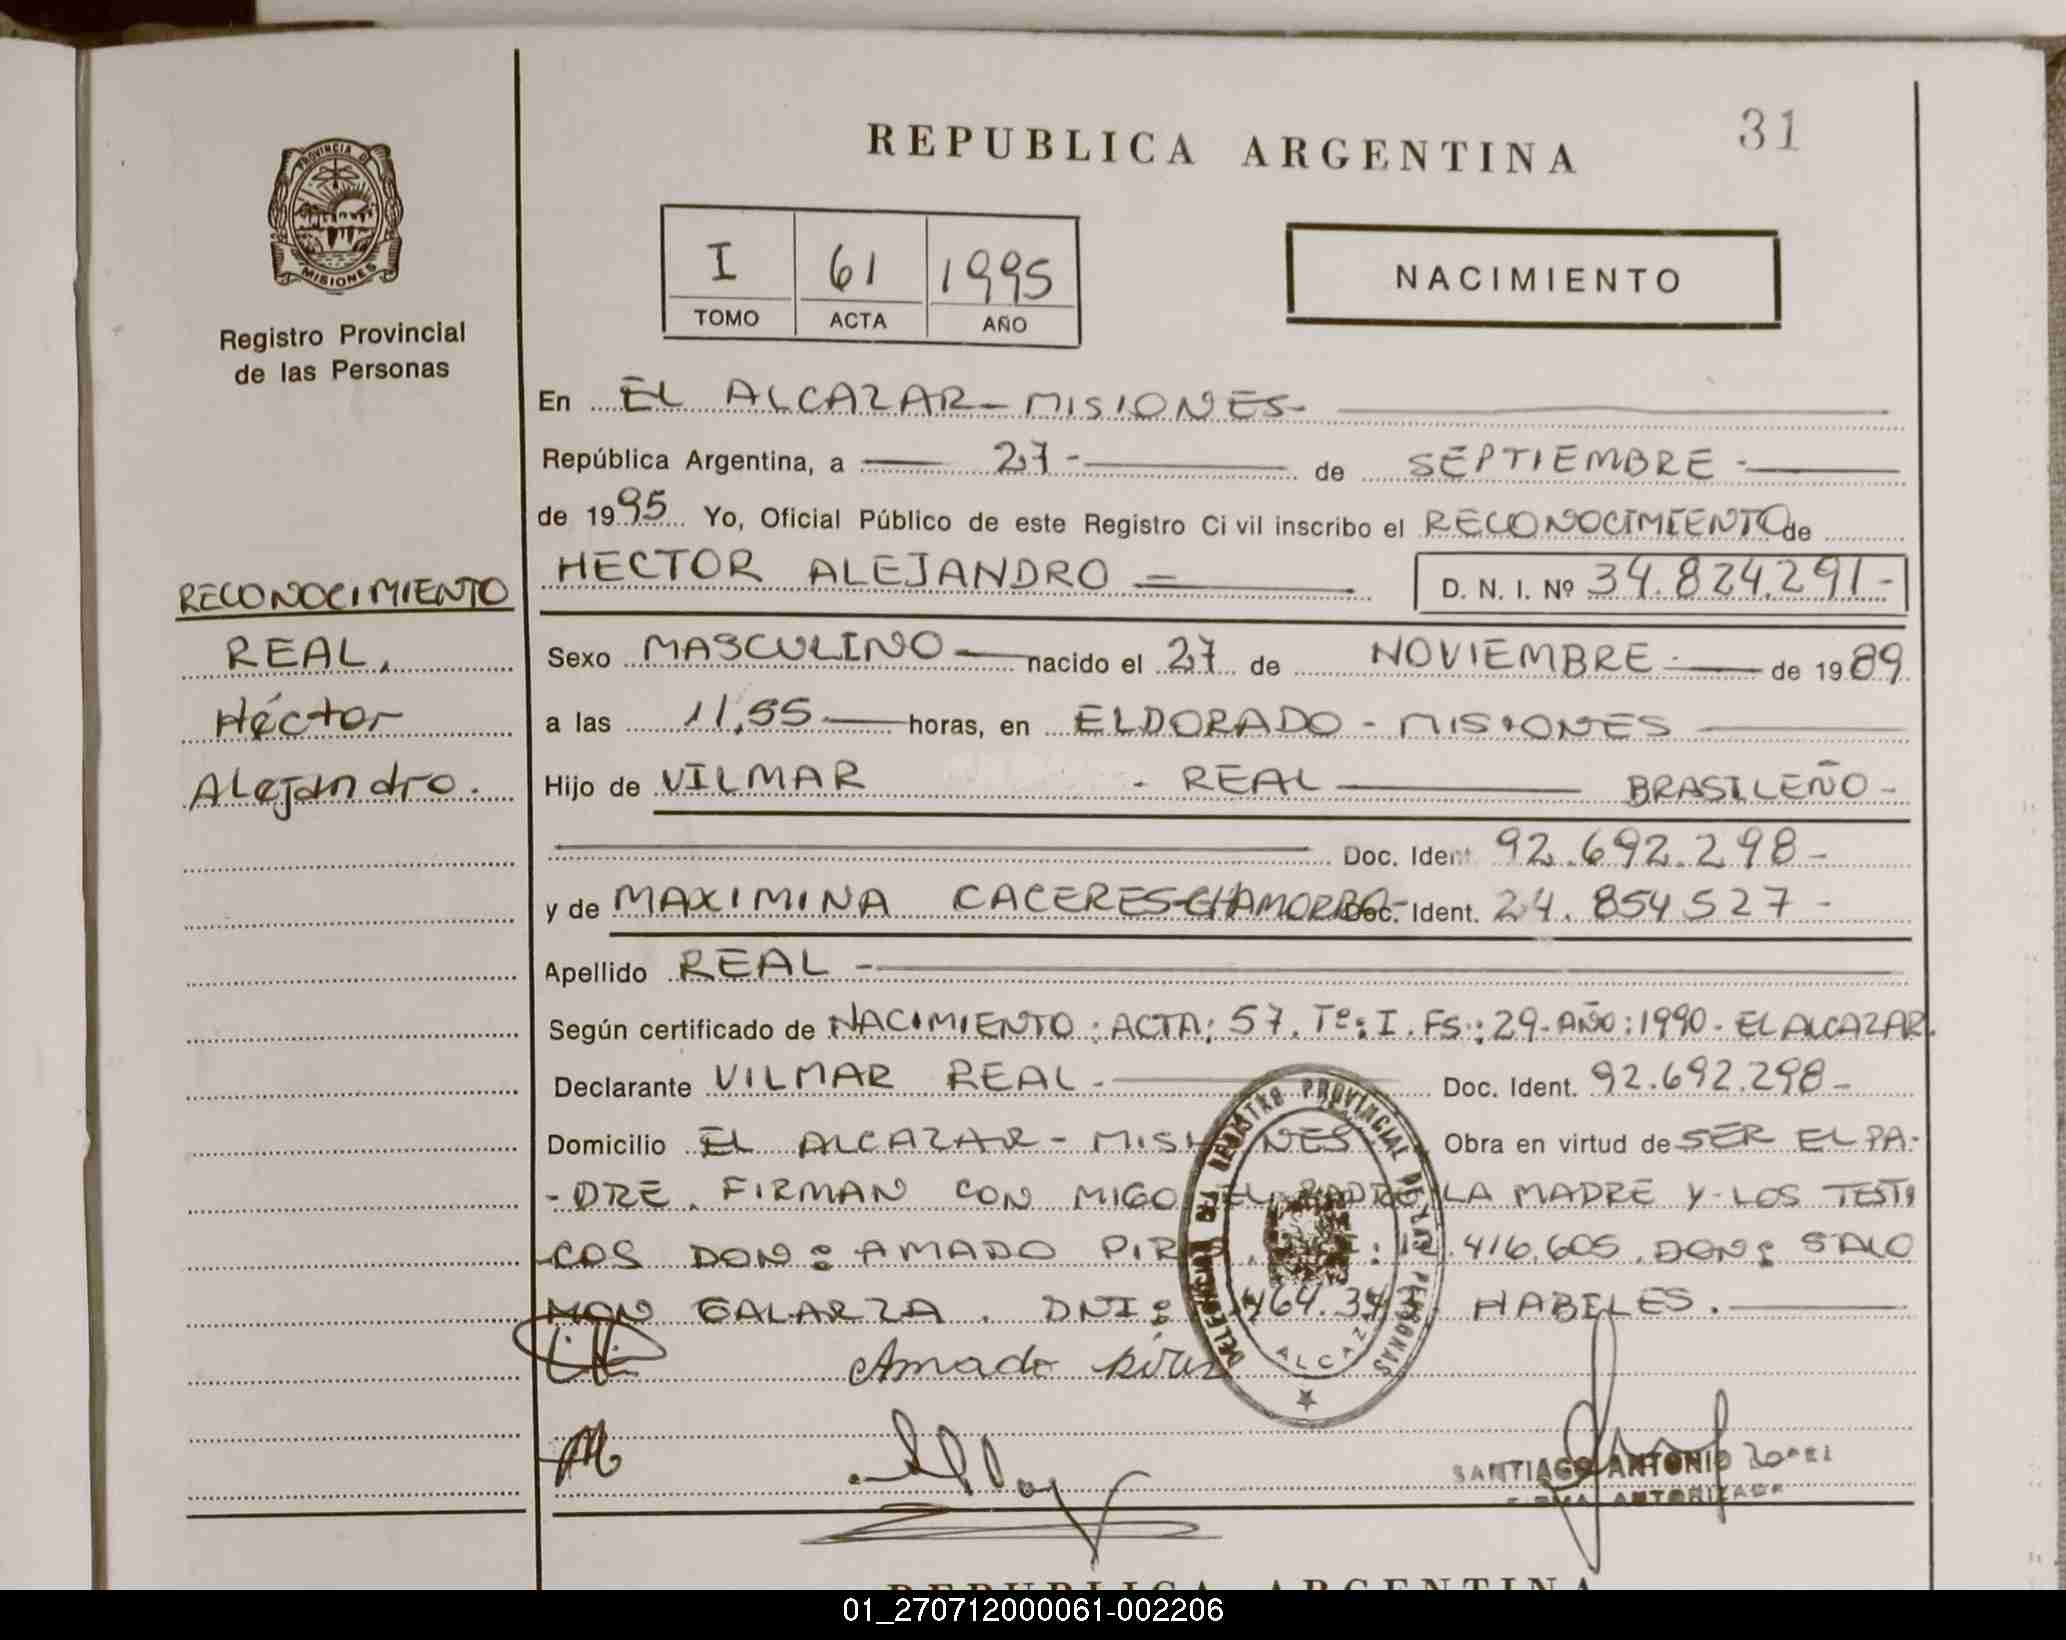 31
REPUBLICA ARGENTINA
PROVINCIA DE
MISIONES
Registro Provincial
de las Personas
I 61 1995
TOMO ACTA AÑO
NACIMIENTO
En EL ALCAZAR - MISIONES-
República Argentina, a 27- de SEPTIEMBRE-
de 1995 Yo, Oficial Público de este Registro Civil inscribo el RECONOCIMIENTO de
HECTOR ALEJANDRO = D. N. I. Nº 34.824.291-
RECONOCIMIENTO
REAL,
Héctor
Alejandro.
Sexo MASCULINO nacido el 27 de NOVIEMBRE- de 1989
a las 11,55 horas, en ELDORADO - MISIONES
Hijo de VILMAR - REAL BRASILEÑO-
Doc. Ident. 92.692.298-
y de MAXIMINA CACERES CHAMORRO- Doc. Ident. 24.854527-
Apellido REAL-
Según certificado de NACIMIENTO: ACTA: 57. Tº: I. FS: 29- AÑO: 1990- EL ALCAZAR.
Declarante VILMAR REAL- Doc. Ident. 92.692.298-
Domicilio EL ALCAZAR - MISIONES. Obra en virtud de SER EL PA-
-DRE. FIRMAN CON MIGO EL PADRE LA MADRE Y LOS TESTI
-GOS DON: AMADO 416.605. DON: SALO
MON GALARZA. DNI: 464. HABILES.
DELEGACION DEL REGISTRO PROVINCIAL DE LAS PERSONAS
ALCAZAR
Amado
SANTIAGO ANTONIO
FIRMA AUTORIZADA
REPUBLICA ARGENTINA
01_270712000061-002206